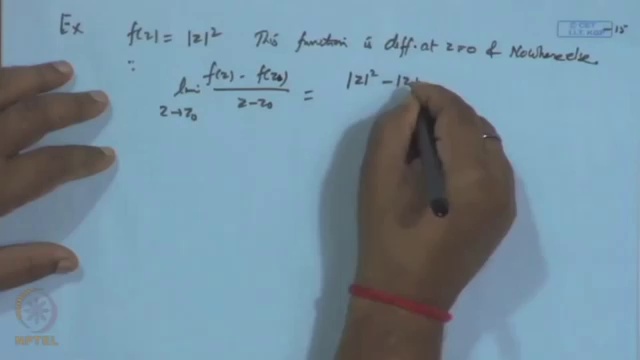 Ex f(z) = |z|² This function is diff. at z=0 & Nowhere else.
∴ lim z→z₀ f(z) - f(z₀) / z - z₀ = |z|² - |z
NPTEL